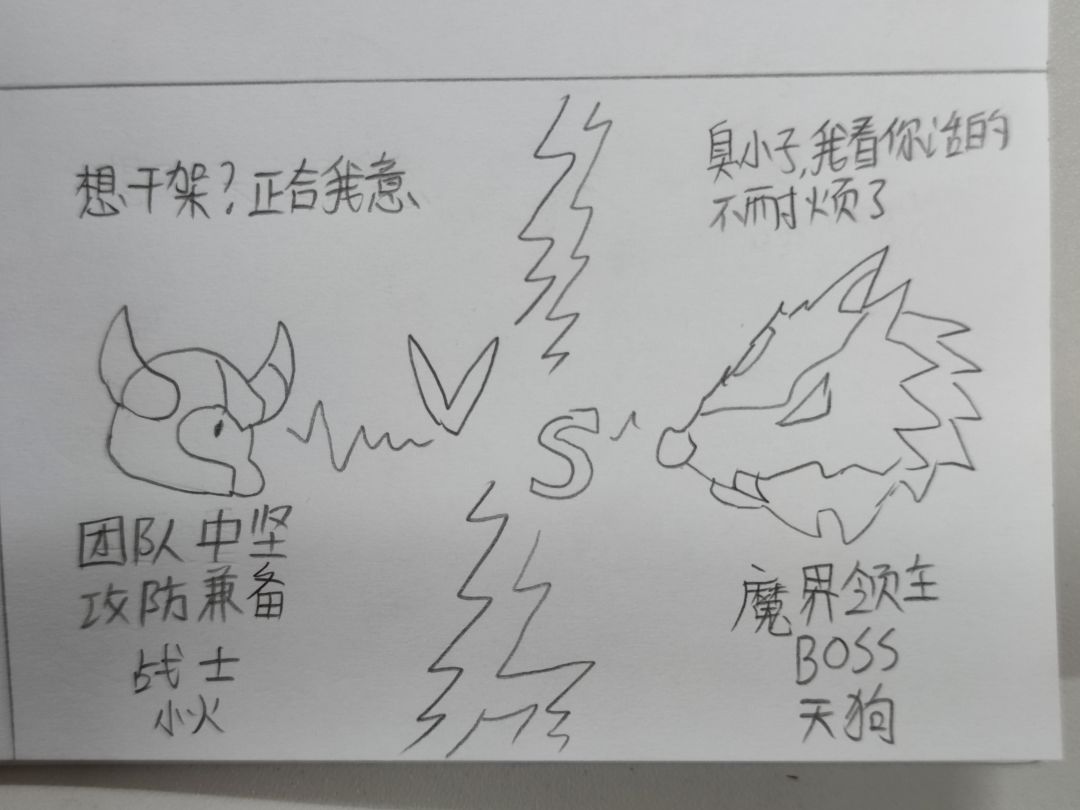 想干架?正合我意、
臭小子,我看你活的
不耐烦了
VS
团队中坚
攻防兼备
战士
小火
魔界领主
BOSS
天狗